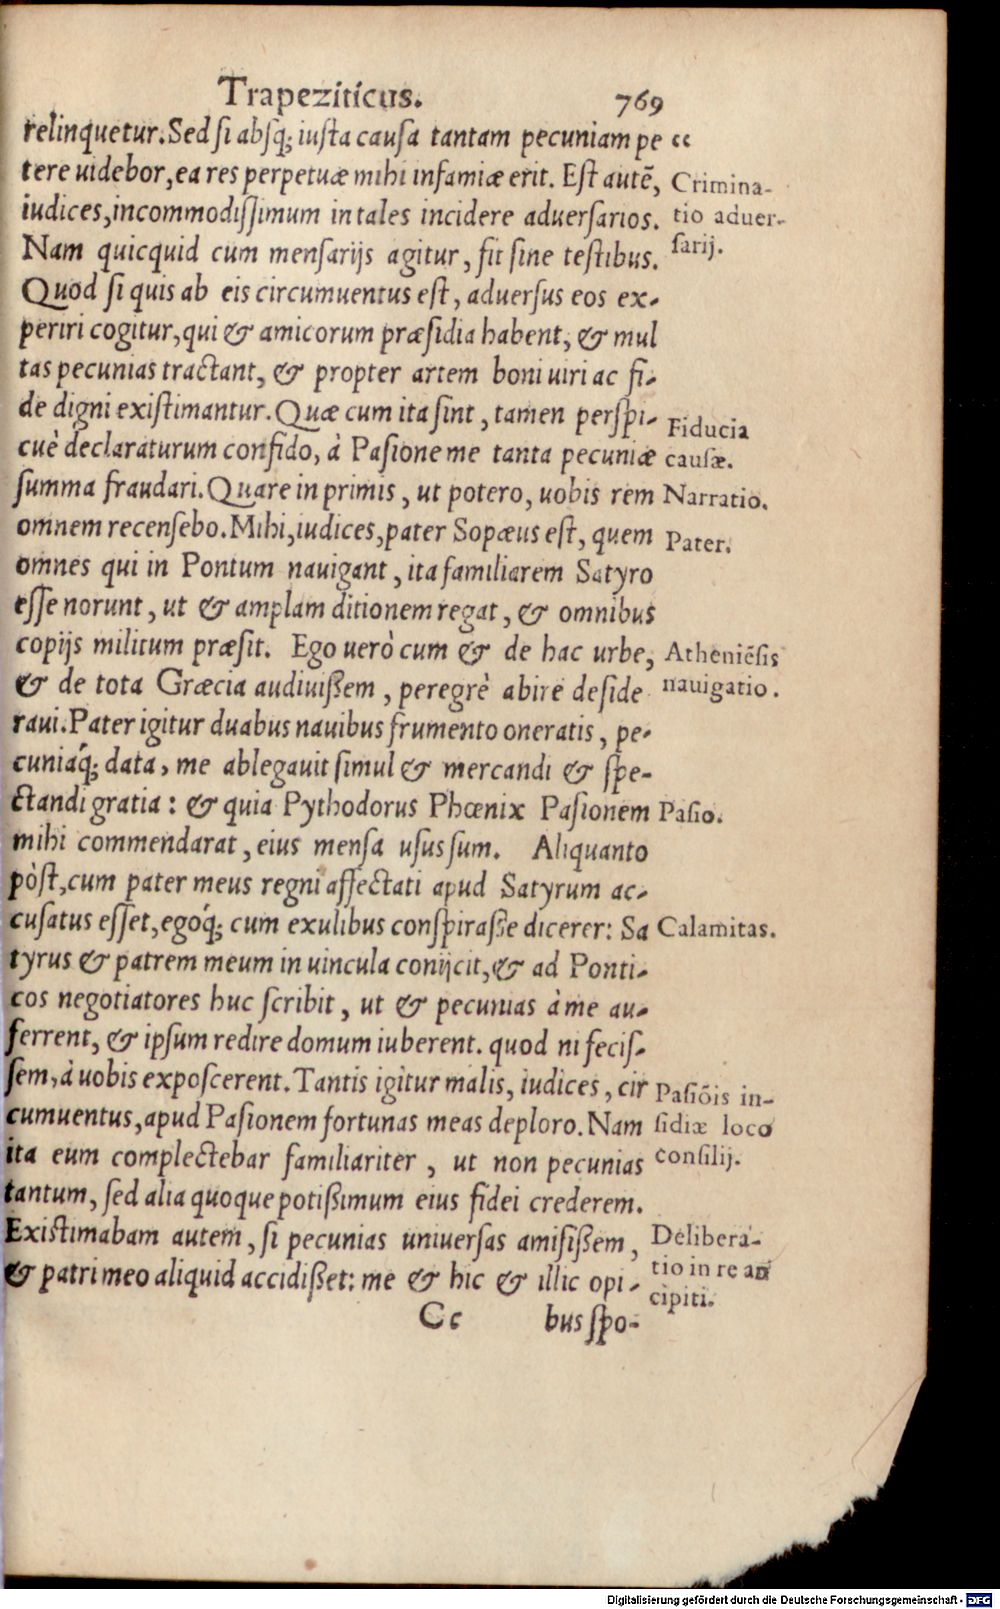 Trapeziticus. 769
relinquetur. Sed si absq; iusta causa tantam pecuniam pe „
tere uidebor, ea res perpetuæ mihi infamiæ erit. Est autẽ, Crimina-
iudices, incommodissimum in tales incidere aduersarios. tio aduer-
sarij.
Nam quicquid cum mensarijs agitur, fit sine testibus.
Quod si quis ab eis circumuentus est, aduersus eos ex-
periri cogitur, qui & amicorum præsidia habent, & mul
tas pecunias tractant, & propter artem boni uiri ac fi-
de digni existimantur. Quæ cum ita sint, tamen perspi- Fiducia
cuè declaraturum confido, à Pasione me tanta pecuniæ causæ.
summa fraudari. Quare in primis, ut potero, uobis rem Narratio.
omnem recensebo. Mihi, iudices, pater Sopæus est, quem Pater.
omnes qui in Pontum nauigant, ita familiarem Satyro
esse norunt, ut & amplam ditionem regat, & omnibus
copijs militum præsit. Ego uerò cum & de hac urbe, Atheniẽsis
& de tota Græcia audiuißem, peregrè abire deside nauigatio.
raui. Pater igitur duabus nauibus frumento oneratis, pe-
cuniáq; data, me ablegauit simul & mercandi & spe-
ctandi gratia: & quia Pythodorus Phœnix Pasionem Pasio.
mihi commendarat, eius mensa usus sum. Aliquanto
pòst, cum pater meus regni affectati apud Satyrum ac-
cusatus esset, egóq; cum exulibus conspiraße dicerer: Sa Calamitas.
tyrus & patrem meum in uincula conijcit, & ad Ponti-
cos negotiatores huc scribit, ut & pecunias à me au-
ferrent, & ipsum redire domum iuberent. quod ni fecis-
sem, à uobis exposcerent. Tantis igitur malis, iudices, cir Pasiõis in-
cumuentus, apud Pasionem fortunas meas deploro. Nam sidiæ loco
ita eum complectebar familiariter, ut non pecunias consilij.
tantum, sed alia quoque potißimum eius fidei crederem.
Existimabam autem, si pecunias uniuersas amisißem, Delibera-
& patri meo aliquid accidißet: me & hic & illic opi- tio in re an
cipiti.
Cc bus spo-
Digitalisierung gefördert durch die Deutsche Forschungsgemeinschaft - DFG